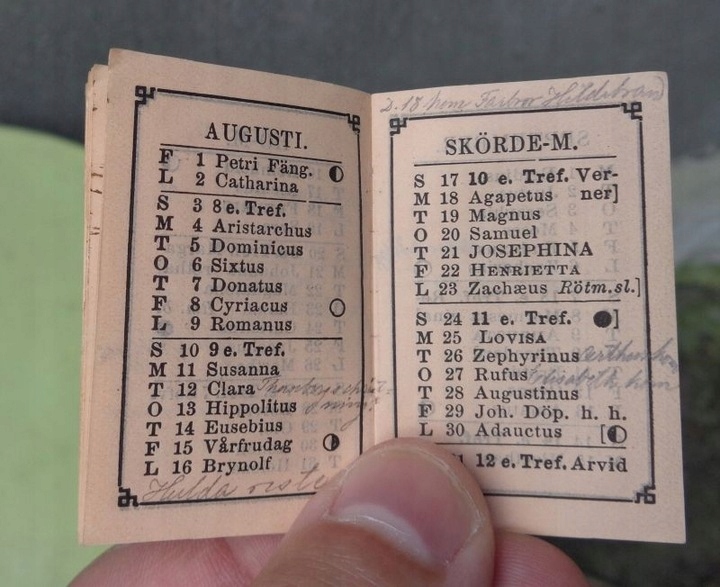 AUGUSTI.
F 1 Petri Fäng.
L 2 Catharina
S 3 8 e. Tref.
M 4 Aristarchus
T 5 Dominicus
O 6 Sixtus
T 7 Donatus
F 8 Cyriacus
L 9 Romanus
S 10 9 e. Tref.
M 11 Susanna
T 12 Clara
O 13 Hippolitus
T 14 Eusebius
F 15 Vårfrudag
L 16 Brynolf
Hulda reste
D. 18 hem Farbror Hildebrand
SKÖRDE-M.
S 17 10 e. Tref. Ver-
M 18 Agapetus ner]
T 19 Magnus
O 20 Samuel
T 21 JOSEPHINA
F 22 HENRIETTA
L 23 Zachæus Rötm.sl.]
S 24 11 e. Tref. ]
M 25 LOVISA
T 26 Zephyrinus Arthur hem
O 27 Rufus Elisabeth hem
T 28 Augustinus
F 29 Joh. Döp. h. h.
L 30 Adauctus [
12 e. Tref. Arvid